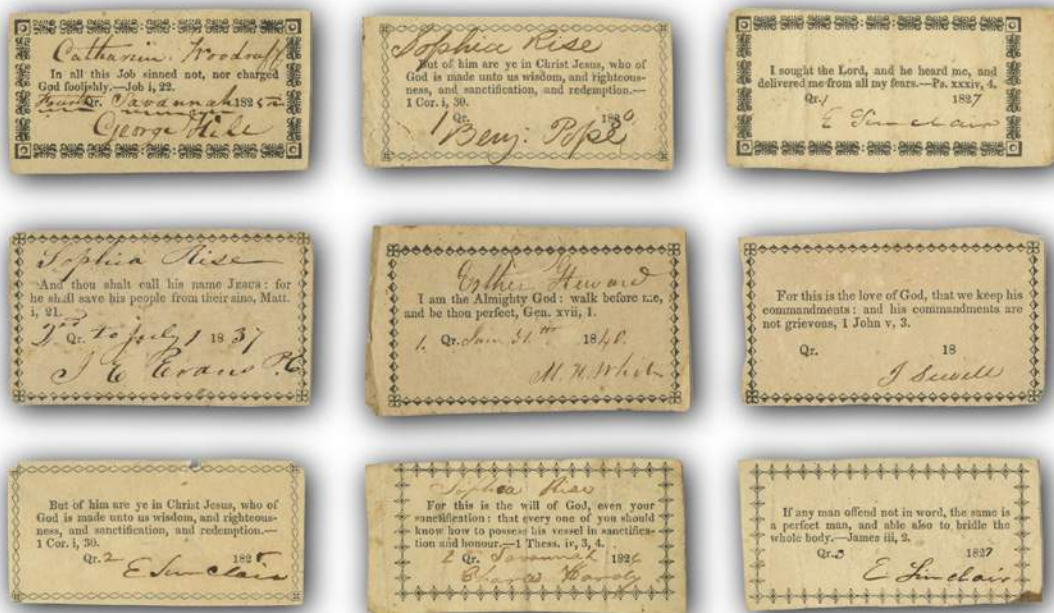 Catharine Woodruff
In all this Job sinned not, nor charged
God foolishly.—Job i, 22.
Qr. Savannah 1825
George Hise
Sophia Rise
But of him are ye in Christ Jesus, who of
God is made unto us wisdom, and righteous-
ness, and sanctification, and redemption.—
1 Cor. i, 30.
1 Qr. 1830
Benj: Pope
I sought the Lord, and he heard me, and
delivered me from all my fears.—Ps. xxxiv, 4.
Qr. 1 1827
E Sinclair
Sophia Rise
And thou shalt call his name Jesus: for
he shall save his people from their sins, Matt.
i, 21.
2nd Qr. to July 1 1837
J E Evans P.C
Esther Steward
I am the Almighty God: walk before me,
and be thou perfect, Gen. xvii, 1.
1. Qr. Jan 31. 1840.
M. H. White
For this is the love of God, that we keep his
commandments: and his commandments are
not grievous, 1 John v, 3.
Qr. 18
J Sewell
But of him are ye in Christ Jesus, who of
God is made unto us wisdom, and righteous-
ness, and sanctification, and redemption.—
1 Cor. i, 30.
Qr. 2 182
E Sinclair
Sophia Rise
For this is the will of God, even your
sanctification: that every one of you should
know how to possess his vessel in sanctifica-
tion and honour.—1 Thess. iv, 3, 4.
2 Qr. Savannah 1826
Hardy
If any man offend not in word, the same is
a perfect man, and able also to bridle the
whole body.—James iii, 2.
Qr. 3 1827
E Sinclair